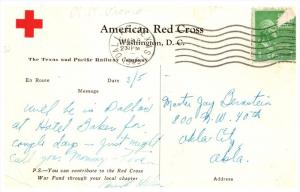 American Red Cross
Washington, D. C.
The Texas and Pacific Railway Company
En Route Date 3/5
Message
Will be in Dallas
at Hotel Baker for
couple days - Just might
call you Mommy
Master Jay Bernstein
800 N.W. 40th
Okla City
Okla.
Address
P.S.—You can contribute to the Red Cross
War Fund through your local chapter